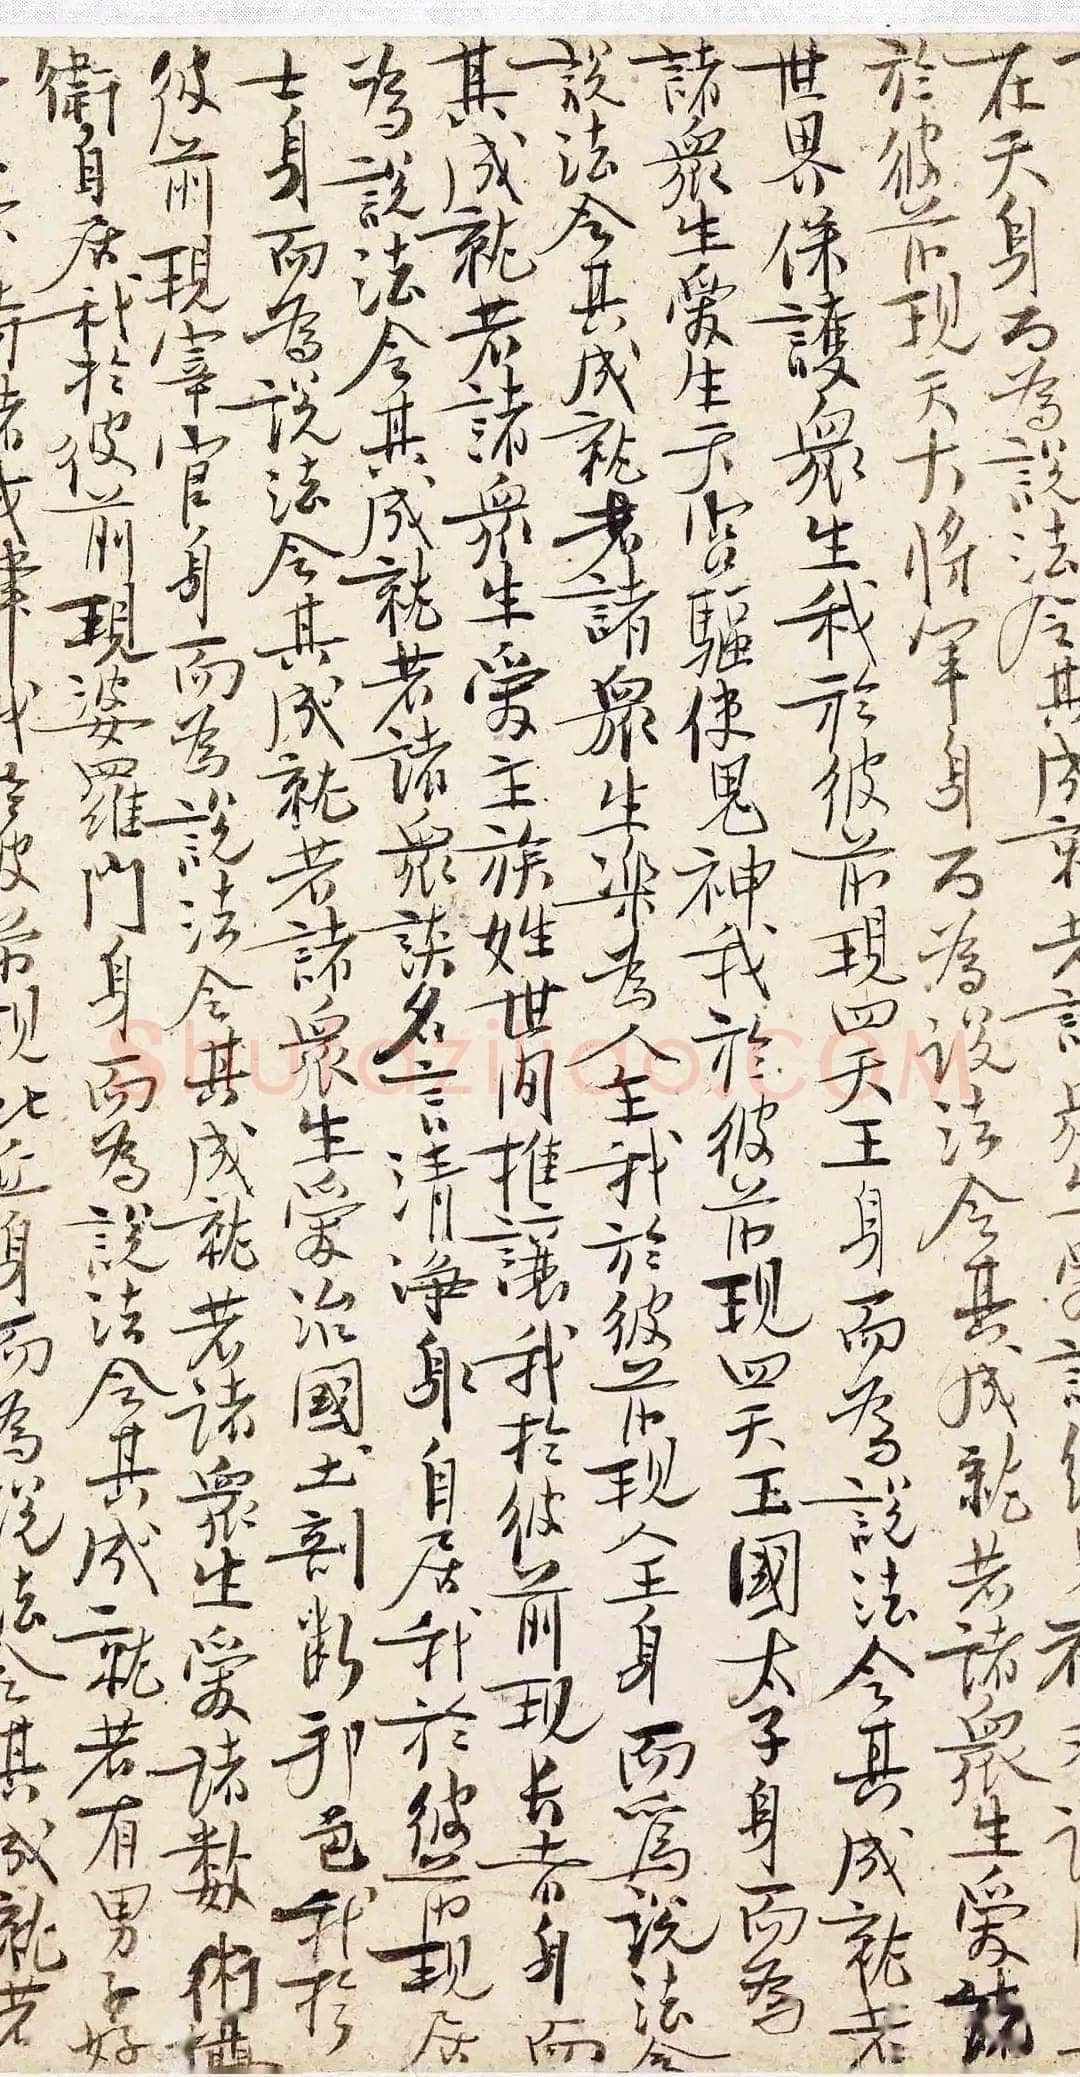 在天身而為說法令其成就若諸眾生
於彼前現天大將軍身而為說法令其成就若諸眾生愛統
世界保護眾生我於彼前現四天王身而為說法令其成就若
諸眾生愛生天宮驅使鬼神我於彼前現四天王國太子身而為
說法令其成就若諸眾生樂為人主我於彼前現人王身而為說法令
其成就若諸眾生愛主族姓世間推讓我於彼前現長者身而
為說法令其成就若諸眾談名言清淨身自居我於彼前現居
士身而為說法令其成就若諸眾生愛治國土剖斷邦邑我於
彼前現宰官身而為說法令其成就若諸眾生愛諸數術攝
衛自居我於彼前現婆羅門身而為說法令其成就若有男子好
持諸戒律我於彼前現比丘身而為說法令其成就若